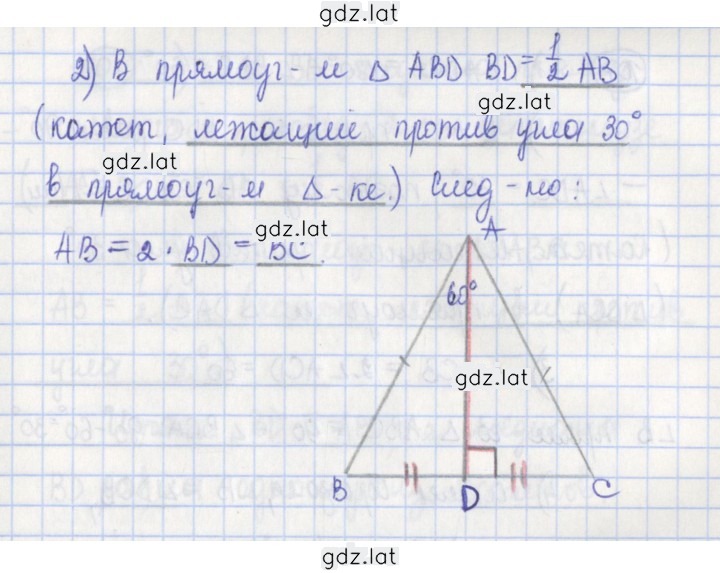 gdz.lat
2) В прямоуг-м Δ ABD BD = 1/2 AB
gdz.lat
(катет, лежащий против угла 30°
gdz.lat
в прямоуг-м Δ-ке.) След-но:
gdz.lat
AB = 2 · BD = BC.
A
60°
gdz.lat
B D C
gdz.lat